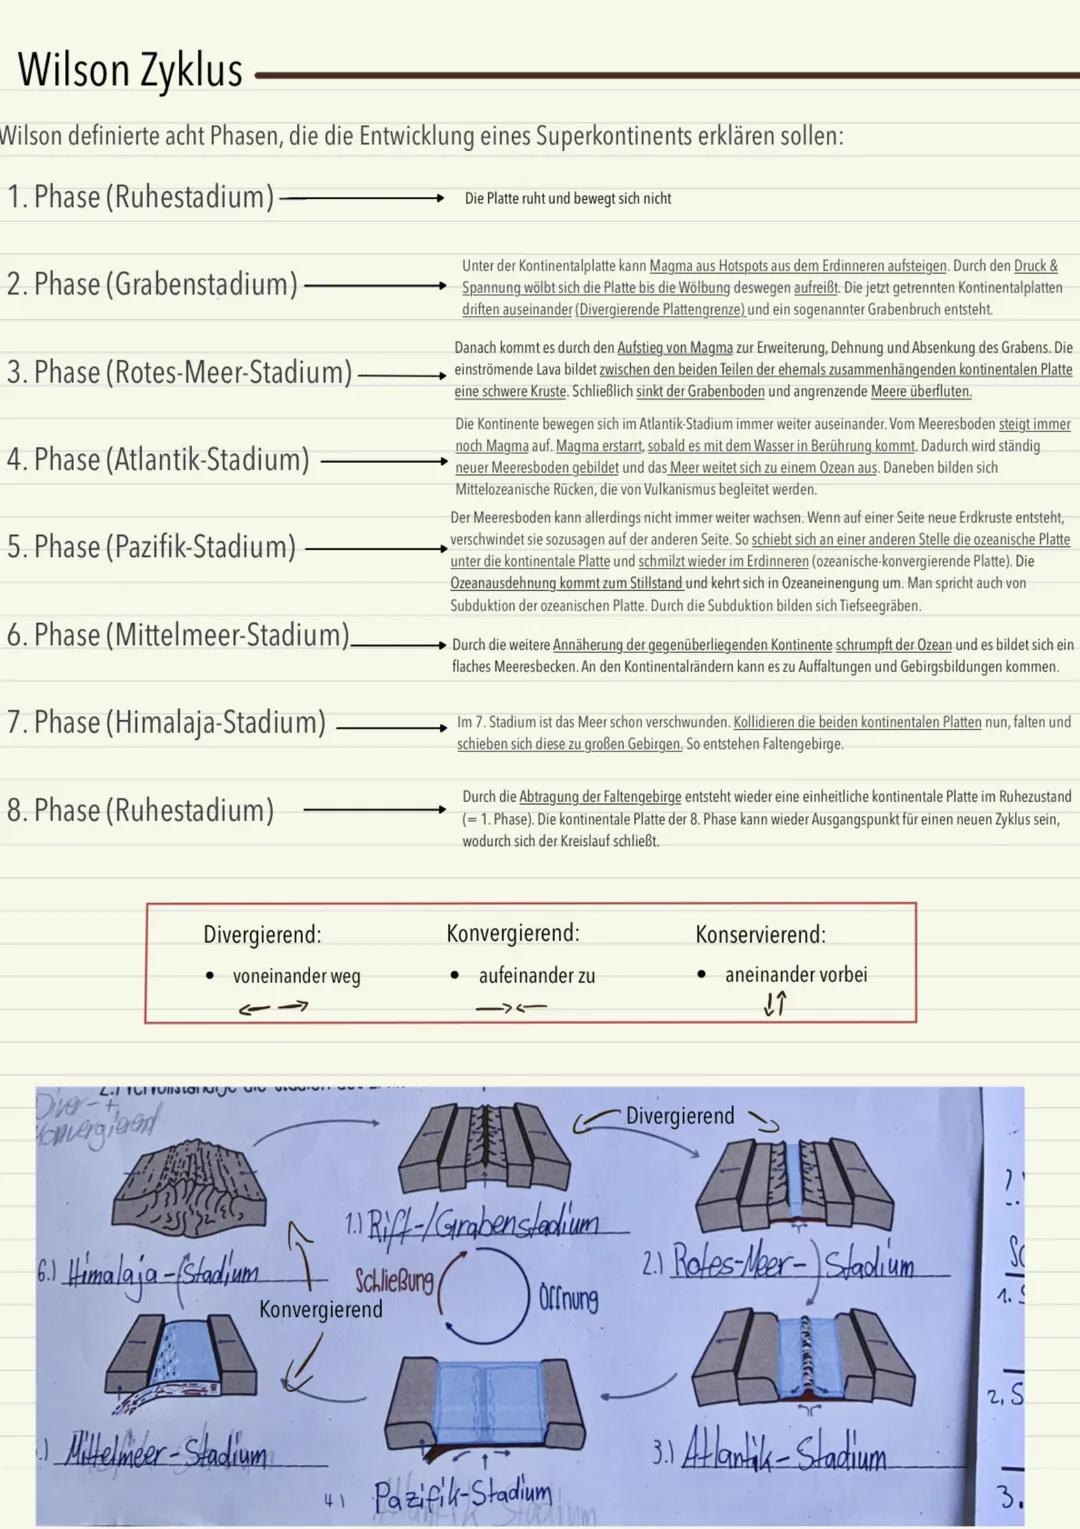 Wilson Zyklus
Wilson definierte acht Phasen, die die Entwicklung eines Superkontinents erklären sollen:
1. Phase (Ruhestadium)
Die Platte ruht und bewegt sich nicht
2. Phase (Grabenstadium)
Unter der Kontinentalplatte kann Magma aus Hotspots aus dem Erdinneren aufsteigen. Durch den Druck &
Spannung wölbt sich die Platte bis die Wölbung deswegen aufreißt. Die jetzt getrennten Kontinentalplatten
driften auseinander (Divergierende Plattengrenze) und ein sogenannter Grabenbruch entsteht.
3. Phase (Rotes-Meer-Stadium)
Danach kommt es durch den Aufstieg von Magma zur Erweiterung, Dehnung und Absenkung des Grabens. Die
einströmende Lava bildet zwischen den beiden Teilen der ehemals zusammenhängenden kontinentalen Platte
eine schwere Kruste. Schließlich sinkt der Grabenboden und angrenzende Meere überfluten.
4. Phase (Atlantik-Stadium)
Die Kontinente bewegen sich im Atlantik-Stadium immer weiter auseinander. Vom Meeresboden steigt immer
noch Magma auf. Magma erstarrt, sobald es mit dem Wasser in Berührung kommt. Dadurch wird ständig
neuer Meeresboden gebildet und das Meer weitet sich zu einem Ozean aus. Daneben bilden sich
Mittelozeanische Rücken, die von Vulkanismus begleitet werden.
5. Phase (Pazifik-Stadium)
Der Meeresboden kann allerdings nicht immer weiter wachsen. Wenn auf einer Seite neue Erdkruste entsteht,
verschwindet sie sozusagen auf der anderen Seite. So schiebt sich an einer anderen Stelle die ozeanische Platte
unter die kontinentale Platte und schmilzt wieder im Erdinneren (ozeanische-konvergierende Platte). Die
Ozeanausdehnung kommt zum Stillstand und kehrt sich in Ozeaneinengung um. Man spricht auch von
Subduktion der ozeanischen Platte. Durch die Subduktion bilden sich Tiefseegräben.
6. Phase (Mittelmeer-Stadium)
Durch die weitere Annäherung der gegenüberliegenden Kontinente schrumpft der Ozean und es bildet sich ein
flaches Meeresbecken. An den Kontinentalrändern kann es zu Auffaltungen und Gebirgsbildungen kommen.
7. Phase (Himalaja-Stadium)
Im 7. Stadium ist das Meer schon verschwunden. Kollidieren die beiden kontinentalen Platten nun, falten und
schieben sich diese zu großen Gebirgen. So entstehen Faltengebirge.
8. Phase (Ruhestadium)
Durch die Abtragung der Faltengebirge entsteht wieder eine einheitliche kontinentale Platte im Ruhezustand
(= 1. Phase). Die kontinentale Platte der 8. Phase kann wieder Ausgangspunkt für einen neuen Zyklus sein,
wodurch sich der Kreislauf schließt.
Divergierend:
• voneinander weg
Konvergierend:
• aufeinander zu
Konservierend:
• aneinander vorbei
Diver- +
konvergierend
Divergierend
1.) Rift-/Grabenstadium
2.) Rotes-Meer-Stadium
6.) Himalaja-Stadium
Schließung
Öffnung
Konvergierend
Mittelmeer-Stadium
3.) Atlantik-Stadium
4) Pazifik-Stadium
1. S
2. S
3.